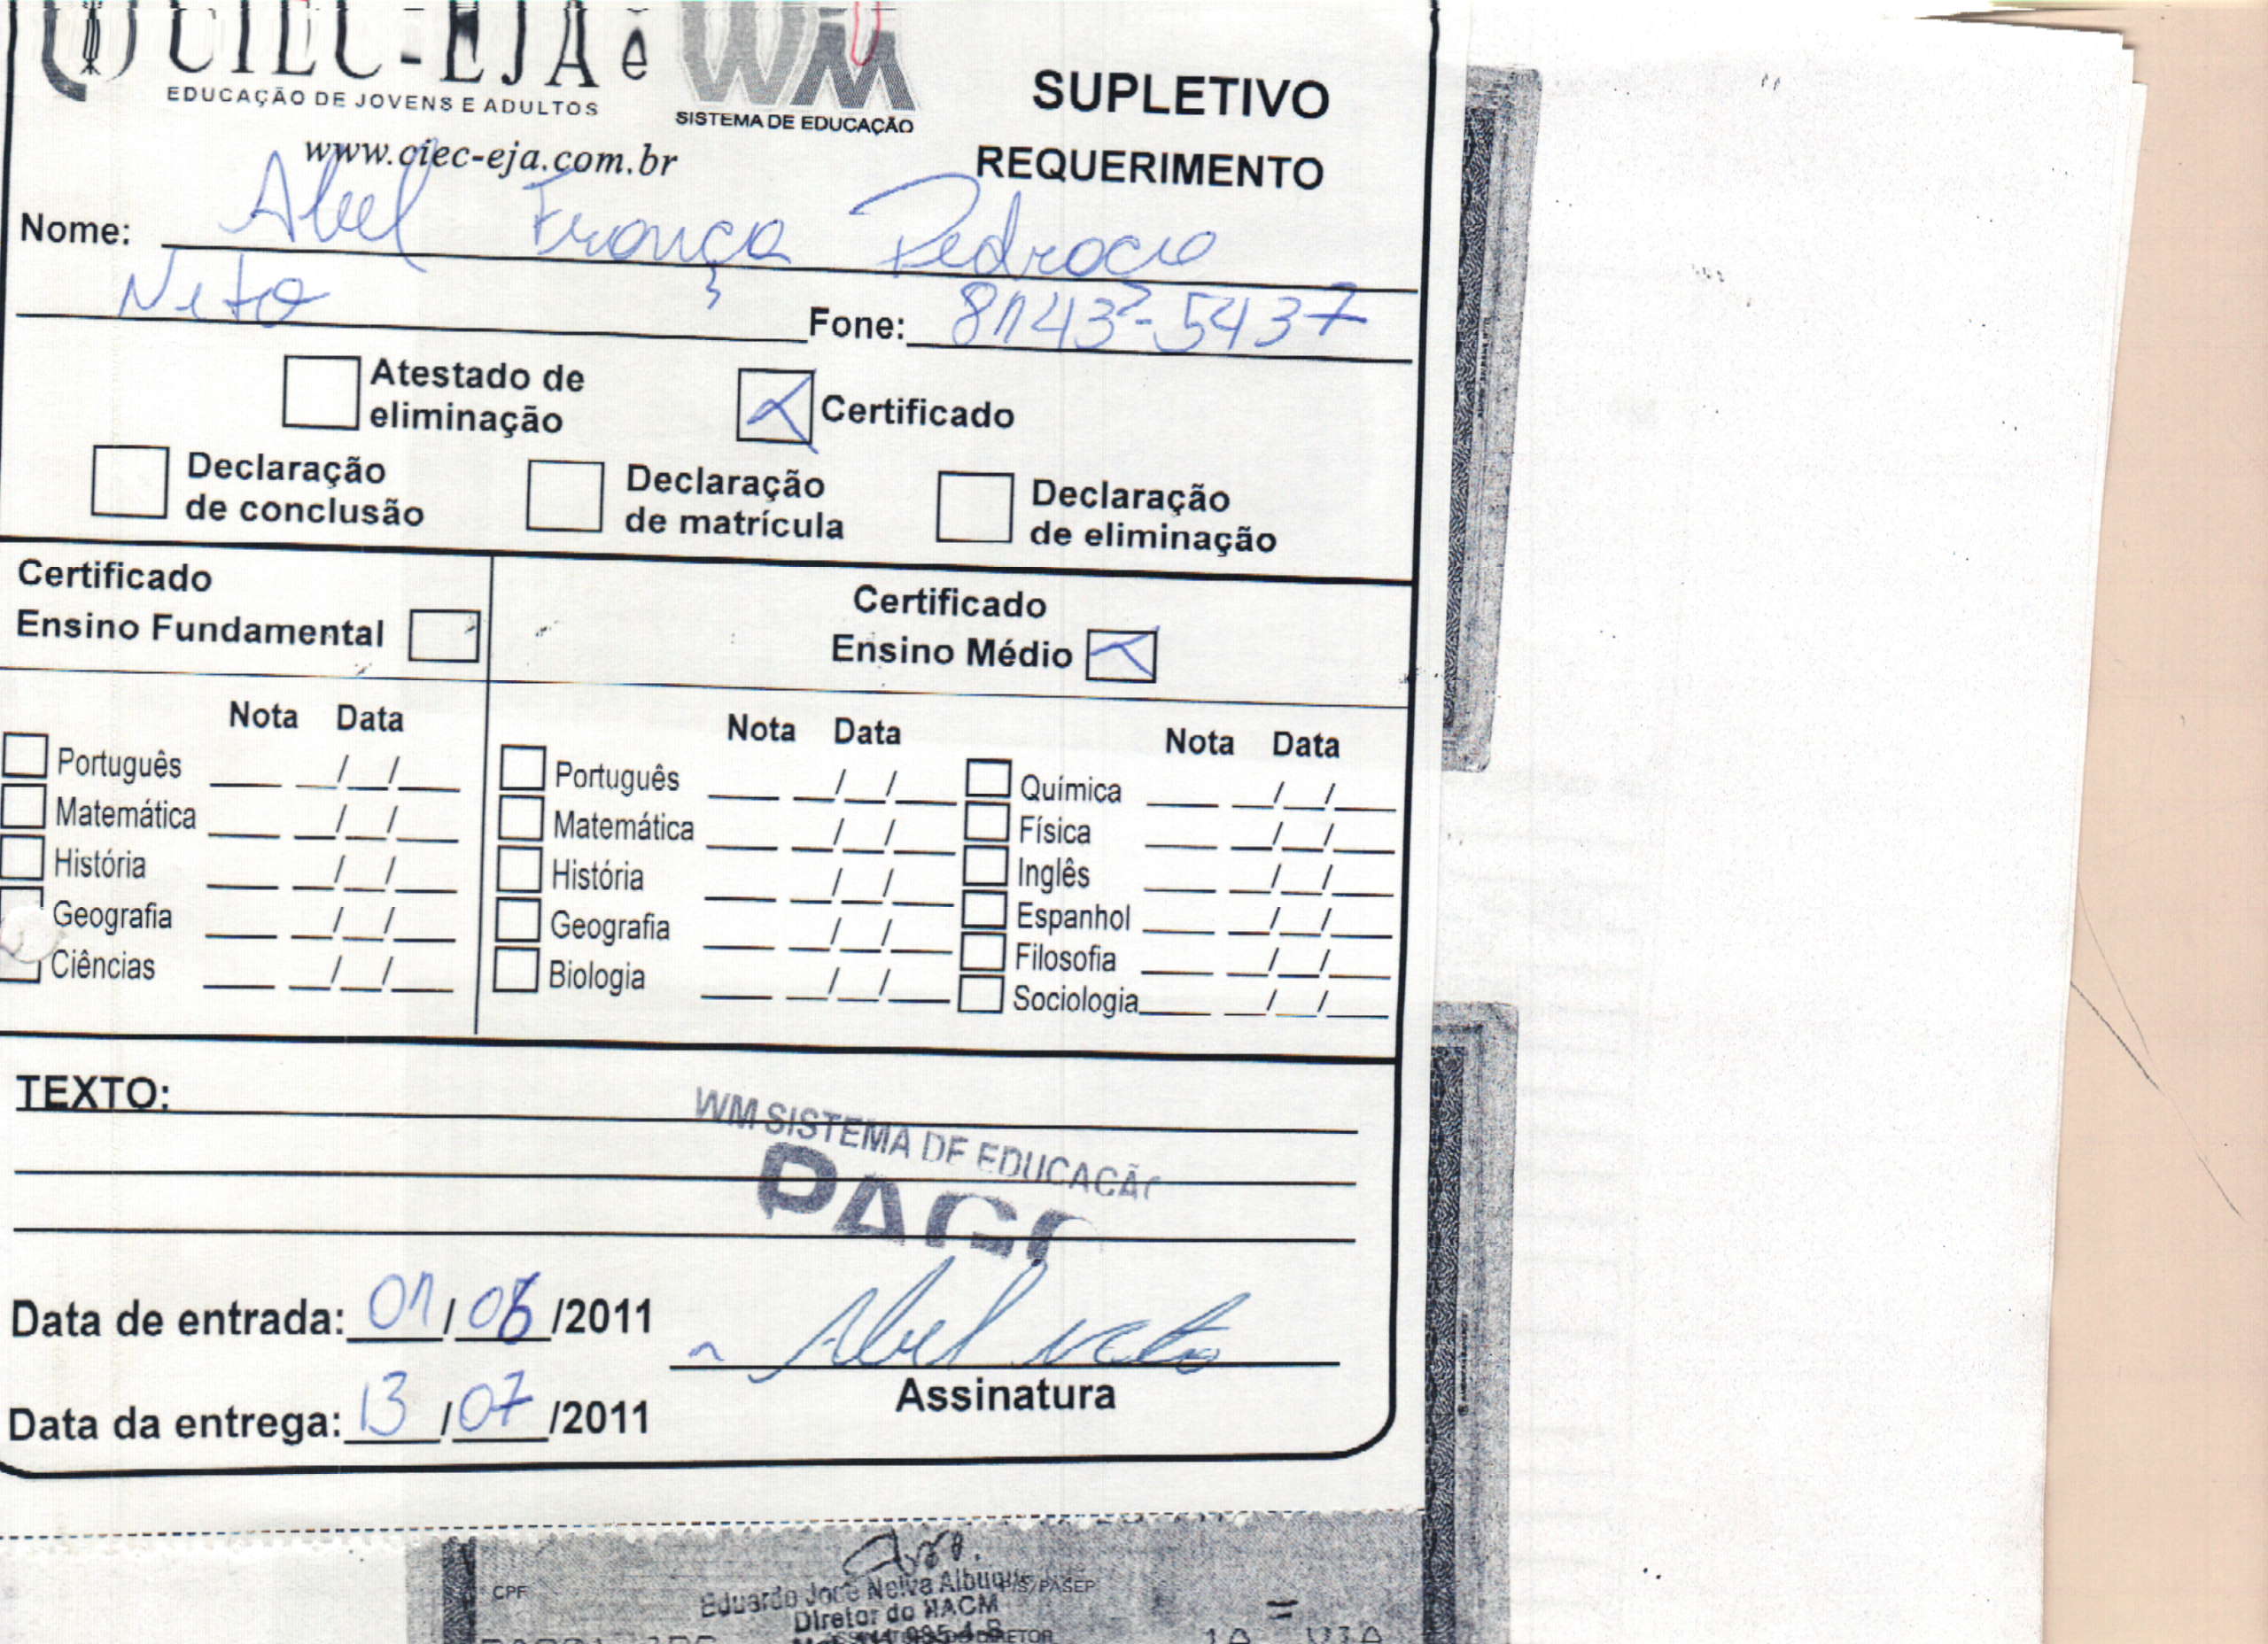 CIEC-EJA e WM
EDUCAÇÃO DE JOVENS E ADULTOS
SISTEMA DE EDUCAÇÃO
www.ciec-eja.com.br
SUPLETIVO
REQUERIMENTO
Nome: Abel França Pedrocio
Neto Fone: 8143-5437
Atestado de eliminação
Certificado
Declaração de conclusão
Declaração de matrícula
Declaração de eliminação
Certificado
Ensino Fundamental
Certificado
Ensino Médio
Nota Data
Português ___ __/__/__
Matemática ___ __/__/__
História ___ __/__/__
Geografia ___ __/__/__
Ciências ___ __/__/__
Nota Data
Português ___ __/__/__
Matemática ___ __/__/__
História ___ __/__/__
Geografia ___ __/__/__
Biologia ___ __/__/__
Nota Data
Química ___ __/__/__
Física ___ __/__/__
Inglês ___ __/__/__
Espanhol ___ __/__/__
Filosofia ___ __/__/__
Sociologia ___ __/__/__
TEXTO:
WM SISTEMA DE EDUCAÇÃO
PAGO
Data de entrada: 01/06/2011
Abel Neto
Assinatura
Data da entrega: 13/07/2011
CPF
PIS/PASEP
Eduardo José Neiva Albuqu
Diretor do NACM
1A VIA